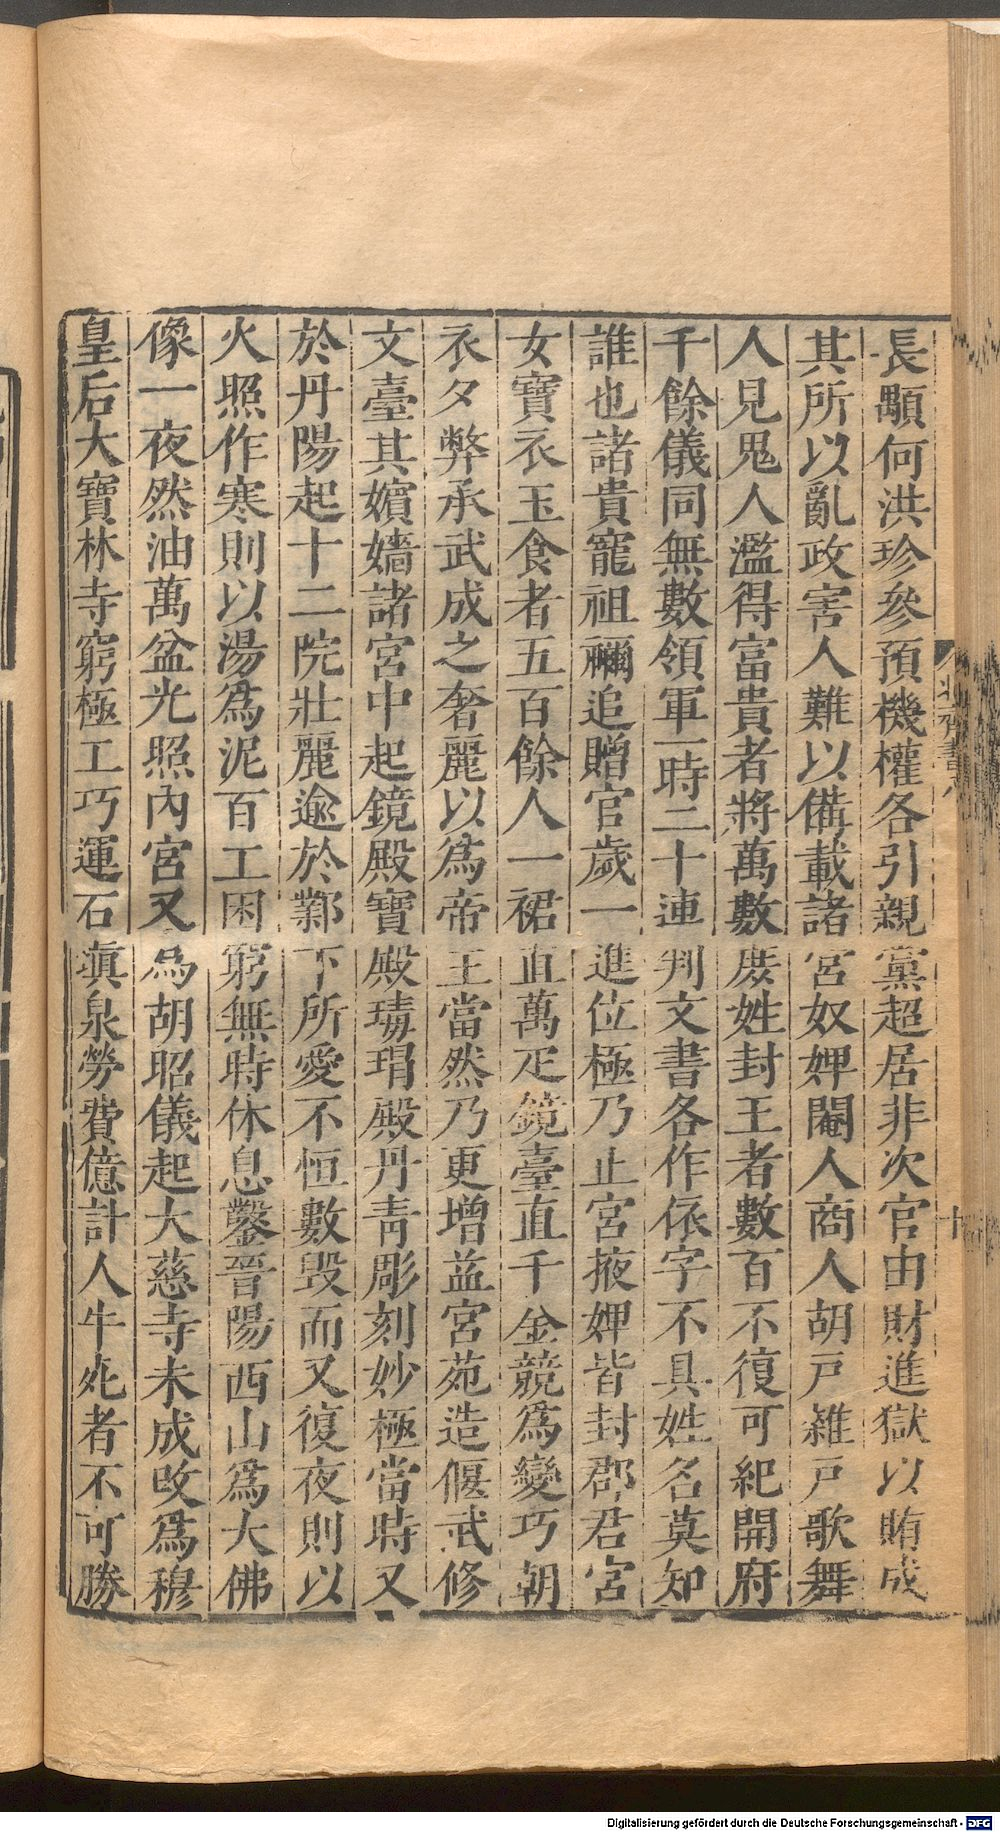 長顒何洪珍參預機權各引親黨超居非次官由財進獄以賄成
其所以亂政害人難以備載諸宮奴婢閹人商人胡戸雜戸歌舞
人見鬼人濫得富貴者將萬數庻姓封王者數百不復可紀開府
千餘儀同無數領軍一時二十連判文書各作依字不具姓名莫知
誰也諸貴寵祖禰追贈官歲一進位極乃止宮掖婢皆封郡君宮
女寶衣玉食者五百餘人一裙直萬疋鏡臺直千金競爲變巧朝
衣夕弊承武成之奢麗以爲帝王當然乃更增益宮苑造偃武修
文臺其嬪嬙諸宮中起鏡殿寶殿瑇瑁殿丹靑彫刻妙極當時又
於丹陽起十二院壯麗逾於鄴下所愛不恒數毀而又復夜則以
火照作寒則以湯爲泥百工困窮無時休息鑿晉陽西山爲大佛
像一夜然油萬盆光照內宮又爲胡昭儀起大慈寺未成改爲穆
皇后大寶林寺窮極工巧運石塡泉勞費億計人牛死者不可勝
北齊書八
十
Digitalisierung gefördert durch die Deutsche Forschungsgemeinschaft - DFG